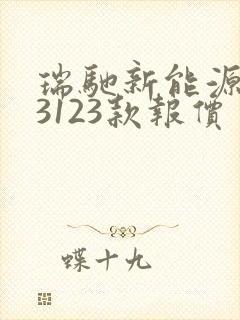 瑞馳新能源
3123款報價
蝶十九